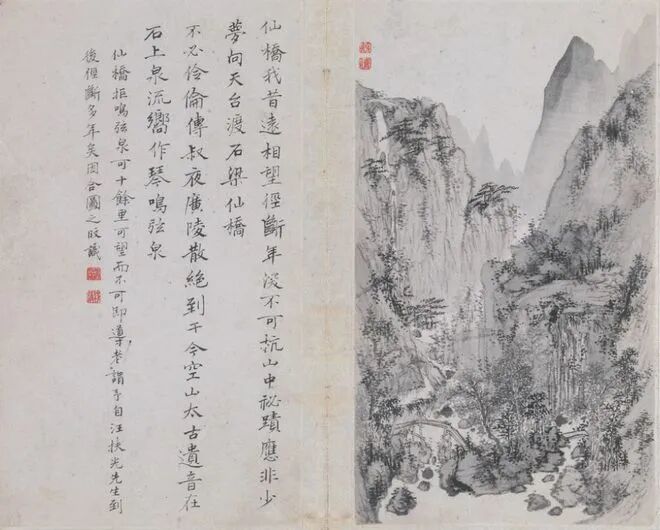 仙橋我昔遠相望俓斷年深不可杭山中祕蹟應非少
夢向天台渡石梁仙橋
不必伶倫傳叔夜廣陵散絕到于今空山太古遺音在
石上泉流嚮作琴鳴弦泉
仙橋拒鳴弦泉可十餘里可望而不可即老謂予自汪扶光先生到
後俓斷多年矣因合圖之旼識